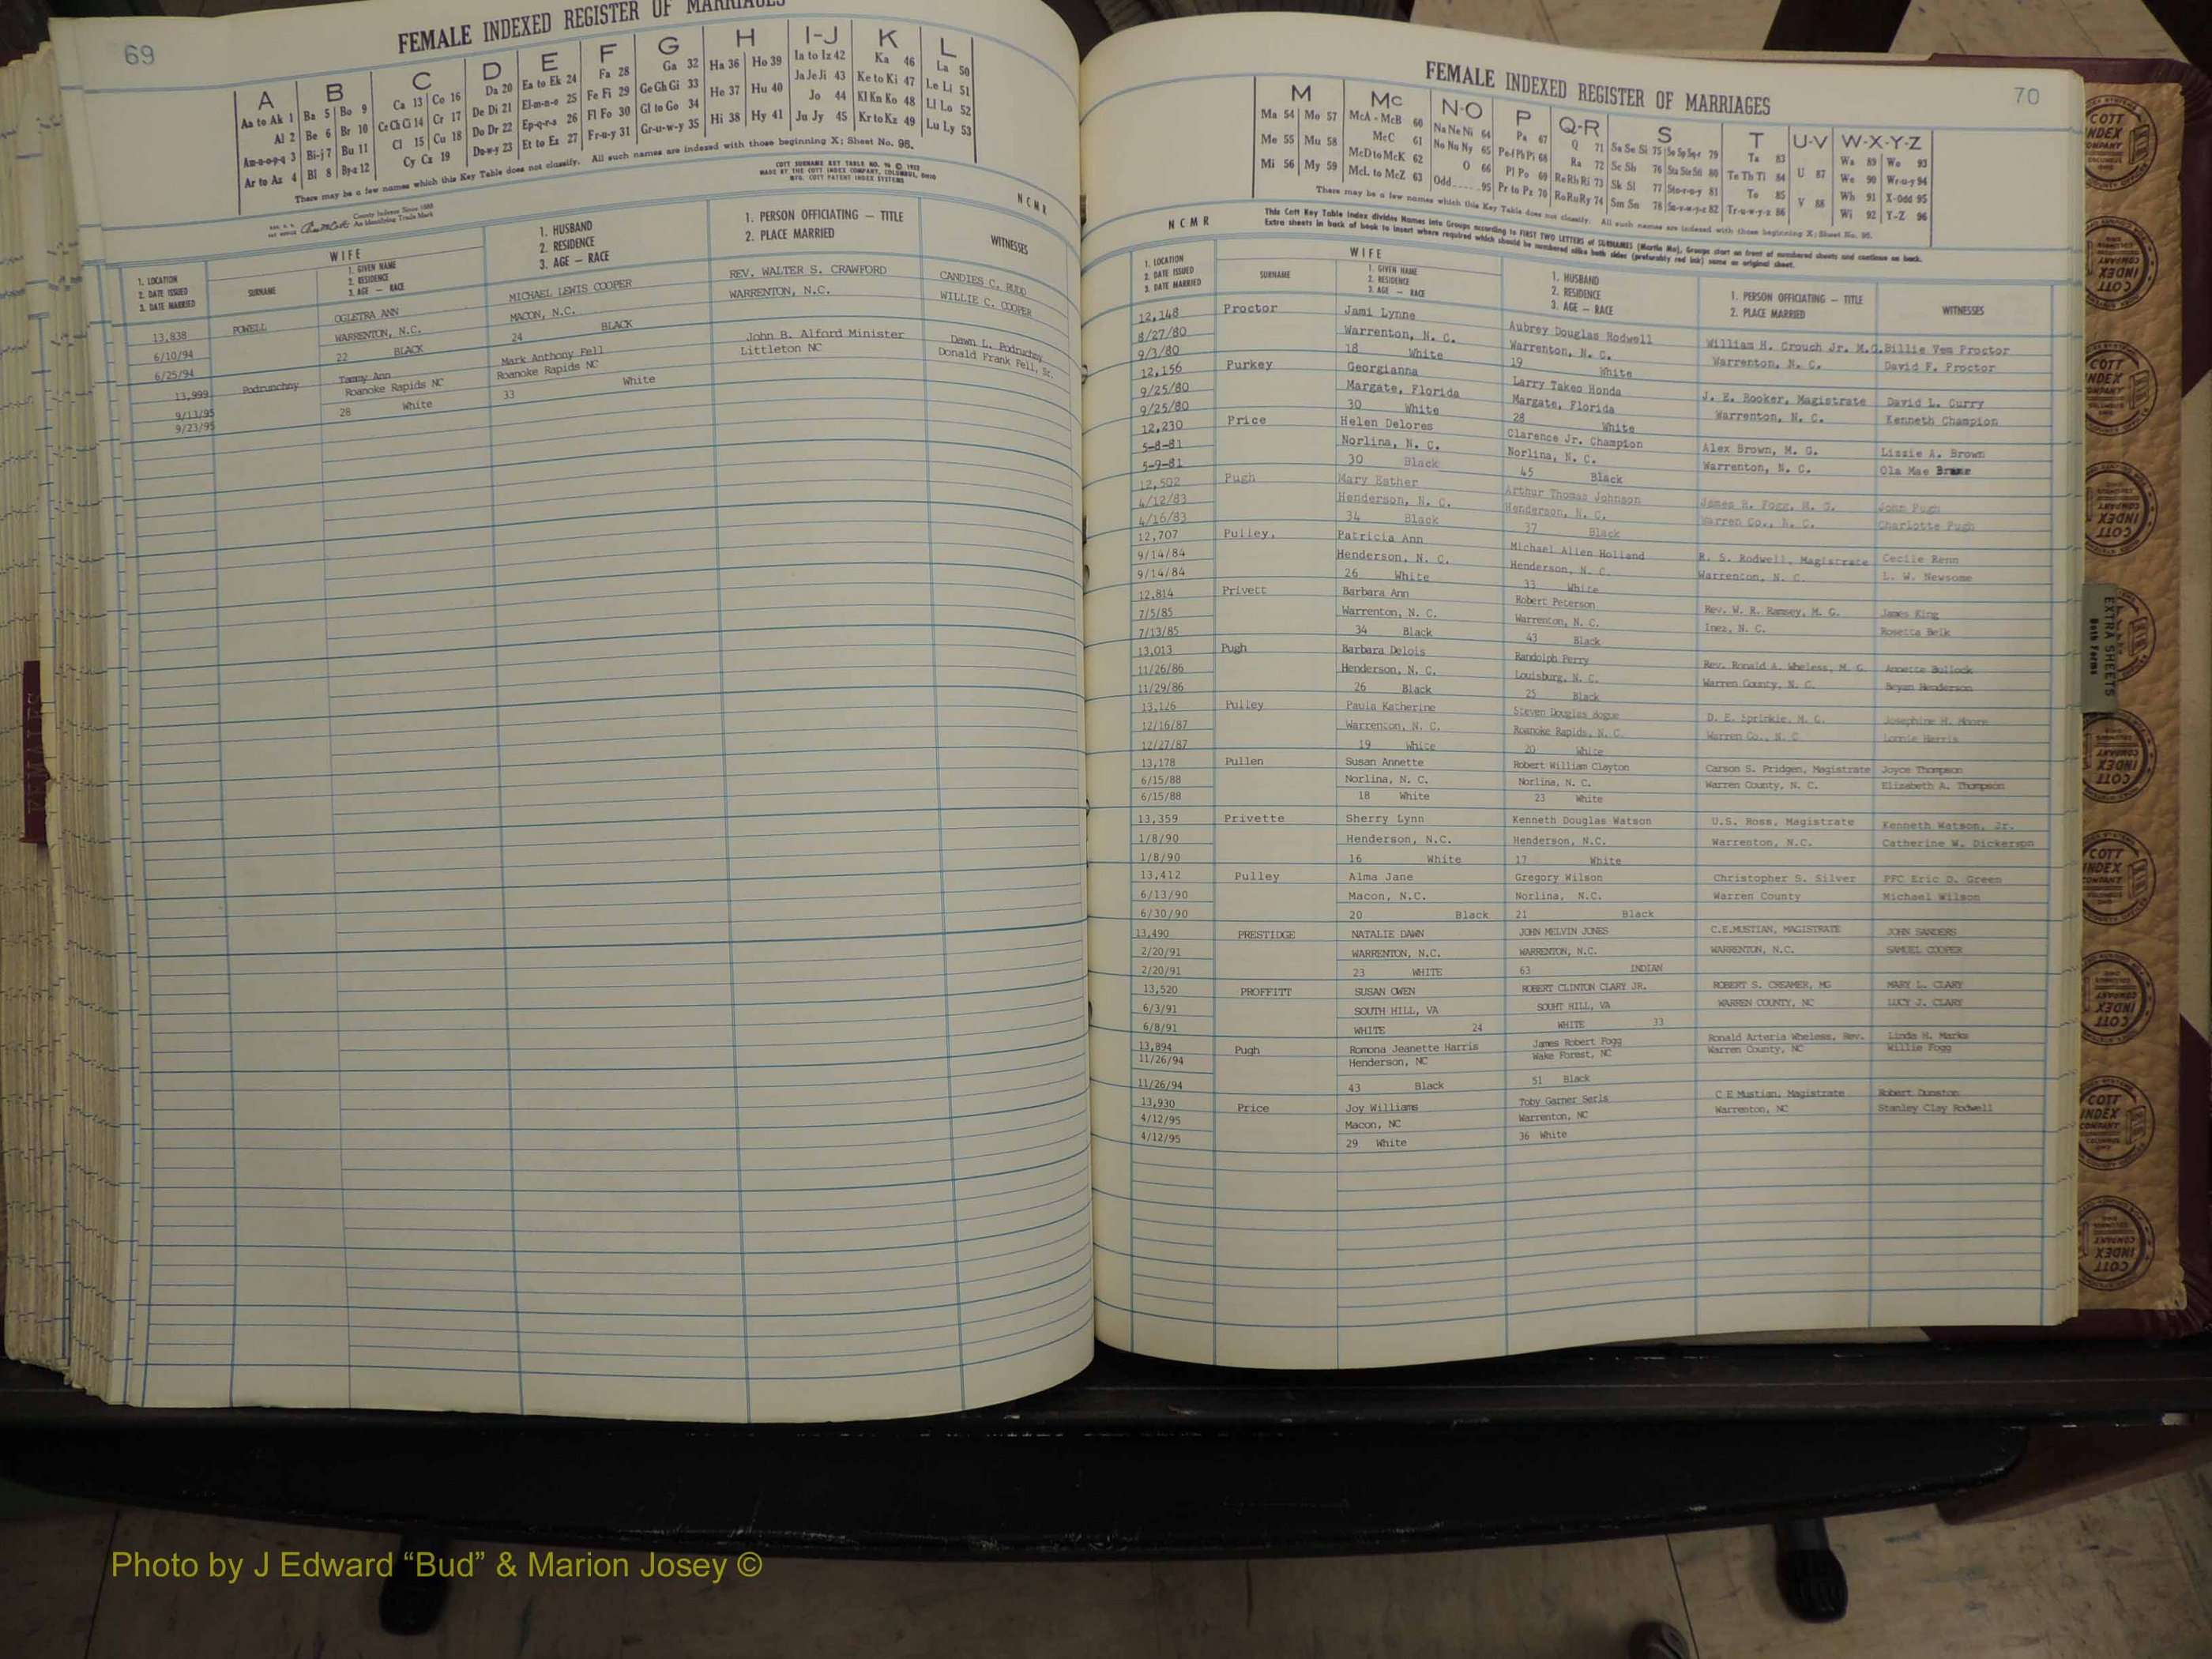 69
FEMALE INDEXED REGISTER OF MARRIAGES
A B C D E F G H I-J K L
Aa to Ak 1 Ba 5 Bo 9 Ca 13 Co 16 Da 20 Ea to Ek 24 Fa 28 Ga 32 Ha 36 Ho 39 Ia to Iz 42 Ka 46 La 50
Al 2 Be 6 Br 10 Ce Ch Ci 14 Cr 17 De Di 21 El-m-n-o 25 Fe Fi 29 Ge Gh Gi 33 He 37 Hu 40 Ja Je Ji 43 Ke to Ki 47 Le Li 51
Am-n-o-p-q 3 Bi-j 7 Bu 11 Cl 15 Cu 18 Do Dr 22 Ep-q-r-s 26 Fl Fo 30 Gl to Go 34 Hi 38 Hy 41 Jo 44 Kl Kn Ko 48 Ll Lo 52
Ar to Az 4 Bl 8 By-z 12 Cy Cz 19 Du-w-y 23 Et to Ez 27 Fr-u-y 31 Gr-u-w-y 35 Ju Jy 45 Kr to Kz 49 Lu Ly 53
There may be a few names which this Key Table does not classify. All such names are indexed with those beginning X; Sheet No. 95.
COTT SURNAME KEY TABLE NO. 96 ©
MADE BY THE COTT INDEX COMPANY, COLUMBUS, OHIO
MFG. COTT PATENT INDEX SYSTEMS
County Indexes Since 1888
An Identifying Trade Mark
NCMR
1. LOCATION
2. DATE ISSUED
3. DATE MARRIED
WIFE
SURNAME
1. GIVEN NAME
2. RESIDENCE
3. AGE — RACE
1. HUSBAND
2. RESIDENCE
3. AGE — RACE
1. PERSON OFFICIATING — TITLE
2. PLACE MARRIED
WITNESSES
13,838 POWELL OGLETRA ANN MICHAEL LEWIS COOPER REV. WALTER S. CRAWFORD CANDIES C. BUDD
6/10/94 WARRENTON, N.C. MACON, N.C. WARRENTON, N.C. WILLIE C. COOPER
6/25/94 22 BLACK 24 BLACK
13,999 Podrunchny Tammy Ann Mark Anthony Fell John B. Alford Minister Dawn L. Podruchny
9/13/95 Roanoke Rapids NC Roanoke Rapids NC Littleton NC Donald Frank Fell, Sr.
9/23/95 28 White 33 White
FEMALE INDEXED REGISTER OF MARRIAGES
70
M Mc N-O P Q-R S T U-V W-X-Y-Z
Ma 54 Mo 57 McA - McB 60 Na Ne Ni 64 Pa 67 Q 71 Sa Se Si 75 So Sp Sq-r 79 Ta 83 U 87 Wa 89 Wo 93
Me 55 Mu 58 McC 61 No Nu Ny 65 Pe-f Ph Pi 68 Ra 72 Sc Sh 76 Sta Ste Sti 80 Te Th Ti 84 V 88 We 90 Wr-u-y 94
Mi 56 My 59 McD to McK 62 O 66 Pl Po 69 Re Rh Ri 73 Sk Sl 77 Sto-r-u-y 81 To 85 Wh 91 X-Odd 95
McL to McZ 63 Odd 95 Pr to Pz 70 Ro Ru Ry 74 Sm Sn 78 Su-v-w-y-z 82 Tr-u-w-y-z 86 Wi 92 Y-Z 96
There may be a few names which this Key Table does not classify. All such names are indexed with those beginning X; Sheet No. 95.
NCMR
This Cott Key Table Index divides Names into Groups according to FIRST TWO LETTERS of SURNAMES (Martin Ma), Groups start on front of numbered sheets and continue on back.
Extra sheets in back of book to insert where required which should be numbered alike both sides (preferably red ink) same as original sheet.
1. LOCATION
2. DATE ISSUED
3. DATE MARRIED
WIFE
SURNAME
1. GIVEN NAME
2. RESIDENCE
3. AGE — RACE
1. HUSBAND
2. RESIDENCE
3. AGE — RACE
1. PERSON OFFICIATING — TITLE
2. PLACE MARRIED
WITNESSES
12,148 Proctor Jami Lynne Aubrey Douglas Rodwell William H. Crouch Jr. M.G. Billie Vem Proctor
8/27/80 Warrenton, N. C. Warrenton, N. C. Warrenton, N. C. David F. Proctor
9/3/80 18 White 19 White
12,156 Purkey Georgianna Larry Takeo Honda J. E. Rooker, Magistrate David L. Curry
9/25/80 Margate, Florida Margate, Florida Warrenton, N. C. Kenneth Champion
9/25/80 30 White 28 White
12,230 Price Helen Delores Clarence Jr. Champion Alex Brown, M. G. Lizzie A. Brown
5-8-81 Norlina, N. C. Norlina, N. C. Warrenton, N. C. Ola Mae Brame
5-9-81 30 Black 45 Black
12,502 Pugh Mary Esther Arthur Thomas Johnson James H. Fogg, M. G. John Pugh
4/12/83 Henderson, N. C. Henderson, N. C. Warren Co., N. C. Charlotte Pugh
4/16/83 34 Black 37 Black
12,707 Pulley, Patricia Ann Michael Allen Holland R. S. Rodwell, Magistrate Cecile Renn
9/14/84 Henderson, N. C. Henderson, N. C. Warrenton, N. C. L. W. Newsome
9/14/84 26 White 33 White
12,814 Privett Barbara Ann Robert Peterson Rev. W. R. Ramsey, M. G. James King
7/5/85 Warrenton, N. C. Warrenton, N. C. Inez, N. C. Rosetta Belk
7/13/85 34 Black 43 Black
13,013 Pugh Barbara Delois Randolph Perry Rev. Ronald A. Wheless, M. G. Annette Bullock
11/26/86 Henderson, N. C. Louisburg, N. C. Warren County, N. C. Bryan Henderson
11/29/86 26 Black 25 Black
13,126 Pulley Paula Katherine Steven Douglas Bogue D. E. Sprinkle, M. G. Josephine H. Moore
12/16/87 Warrenton, N. C. Roanoke Rapids, N. C. Warren Co., N. C Lonnie Harris
12/27/87 19 White 20 White
13,178 Pullen Susan Annette Robert William Clayton Carson S. Pridgen, Magistrate Joyce Thompson
6/15/88 Norlina, N. C. Norlina, N. C. Warren County, N. C. Elizabeth A. Thompson
6/15/88 18 White 23 White
13,359 Privette Sherry Lynn Kenneth Douglas Watson U.S. Ross, Magistrate Kenneth Watson, Jr.
1/8/90 Henderson, N.C. Henderson, N.C. Warrenton, N.C. Catherine W. Dickerson
1/8/90 16 White 17 White
13,412 Pulley Alma Jane Gregory Wilson Christopher S. Silver PFC Eric D. Green
6/13/90 Macon, N.C. Norlina, N.C. Warren County Michael Wilson
6/30/90 20 Black 21 Black
13,490 PRESTIDGE NATALIE DAWN JOHN MELVIN JONES C.E.MUSTIAN, MAGISTRATE JOHN SANDERS
2/20/91 WARRENTON, N.C. WARRENTON, N.C. WARRENTON, N.C. SAMUEL COOPER
2/20/91 23 WHITE 63 INDIAN
13,520 PROFFITT SUSAN OWEN ROBERT CLINTON CLARY JR. ROBERT S. CREAMER, MG MARY L. CLARY
6/3/91 SOUTH HILL, VA SOUHT HILL, VA WARREN COUNTY, NC LUCY J. CLARY
6/8/91 WHITE 24 WHITE 33
13,894 Pugh Romona Jeanette Harris James Robert Fogg Ronald Arteria Wheless, Rev. Linda H. Marks
11/26/94 Henderson, NC Wake Forest, NC Warren County, NC Willie Fogg
11/26/94 43 Black 51 Black
13,930 Price Joy Williams Toby Garner Serls C E Mustian, Magistrate Robert Dunston
4/12/95 Macon, NC Warrenton, NC Warrenton, NC Stanley Clay Rodwell
4/12/95 29 White 36 White
EXTRA SHEETS
Both Forms
COTT INDEX COMPANY
Photo by J Edward “Bud” & Marion Josey ©